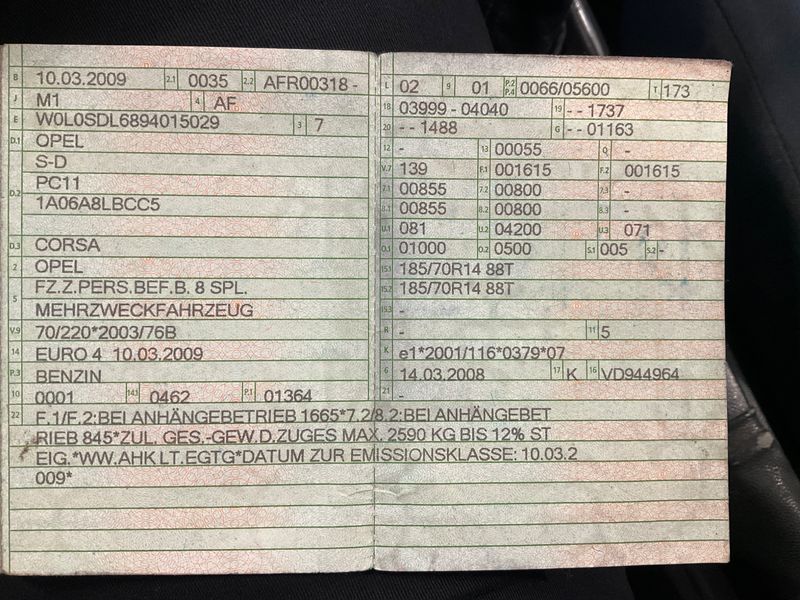 B 10.03.2009 2.1 0035 2.2 AFR00318 -
J M1 4 AF
E W0L0SDL6894015029 3 7
D.1 OPEL
S-D
D.2 PC11
1A06A8LBCC5
D.3 CORSA
2 OPEL
5 FZ.Z.PERS.BEF.B. 8 SPL.
MEHRZWECKFAHRZEUG
V.9 70/220*2003/76B
14 EURO 4 10.03.2009
P.3 BENZIN
10 0001 14.1 0462 P.1 01364
L 02 9 01 P.2 P.4 0066/05600 T 173
18 03999 - 04040 19 - - 1737
20 - - 1488 G - - 01163
12 - 13 00055 Q -
V.7 139 F.1 001615 F.2 001615
7.1 00855 7.2 00800 7.3 -
8.1 00855 8.2 00800 8.3 -
U.1 081 U.2 04200 U.3 071
O.1 01000 O.2 0500 S.1 005 S.2 -
15.1 185/70R14 88T
15.2 185/70R14 88T
15.3 -
R - 11 5
K e1*2001/116*0379*07
6 14.03.2008 17 K 16 VD944964
21 -
22 F.1/F.2:BEI ANHÄNGEBETRIEB 1665*7.2/8.2:BEI ANHÄNGEBET
RIEB 845*ZUL. GES.-GEW.D.ZUGES MAX. 2590 KG BIS 12% ST
EIG.*WW.AHK LT.EGTG*DATUM ZUR EMISSIONSKLASSE: 10.03.2
009*